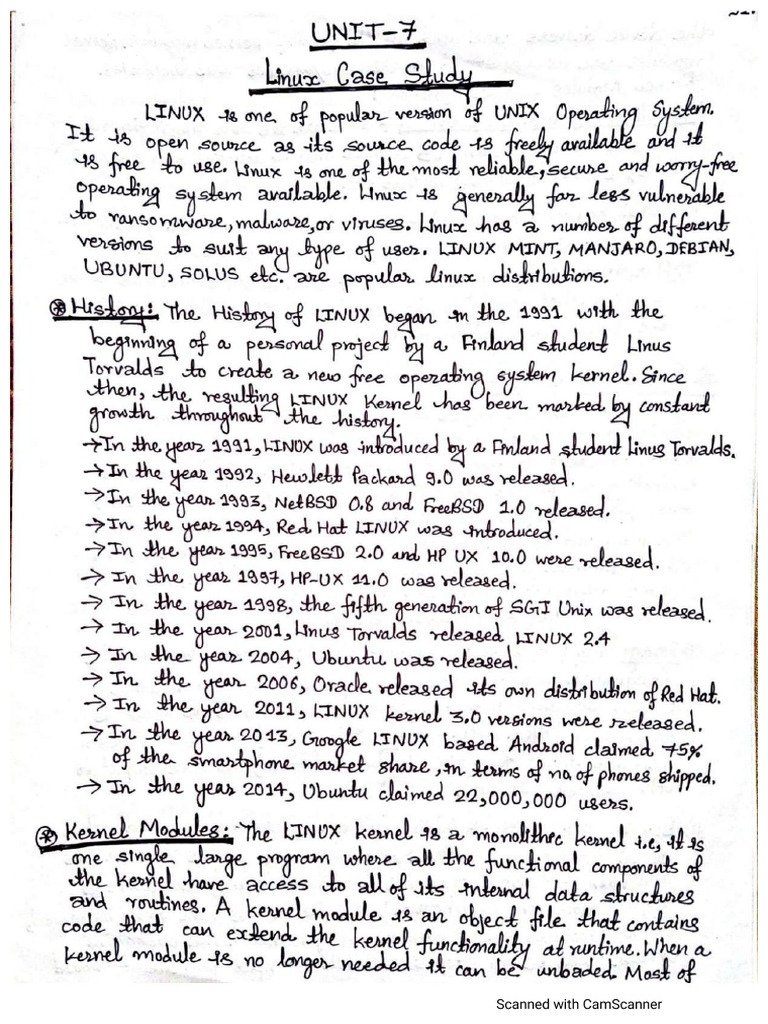 UNIT-7
Linux Case Study
LINUX is one of popular version of UNIX Operating System.
It is open source as its source code is freely available and it
is free to use. Linux is one of the most reliable, secure and worry-free
operating system available. Linux is generally far less vulnerable
to ransomware, malware, or viruses. Linux has a number of different
versions to suit any type of user. LINUX MINT, MANJARO, DEBIAN,
UBUNTU, SOLUS etc. are popular linux distributions.
⊛ History: The History of LINUX began in the 1991 with the
beginning of a personal project by a Finland student Linus
Torvalds to create a new free operating system kernel. Since
then, the resulting LINUX Kernel has been marked by constant
growth throughout the history.
→In the year 1991, LINUX was introduced by a Finland student Linus Torvalds.
→In the year 1992, Hewlett Packard 9.0 was released.
→In the year 1993, NetBSD 0.8 and FreeBSD 1.0 released.
→In the year 1994, Red Hat LINUX was introduced.
→In the year 1995, FreeBSD 2.0 and HP UX 10.0 were released.
→ In the year 1997, HP-UX 11.0 was released.
→ In the year 1998, the fifth generation of SGI Unix was released.
→ In the year 2001, Linus Torvalds released LINUX 2.4
→ In the year 2004, Ubuntu was released.
→ In the year 2006, Oracle released its own distribution of Red Hat.
→ In the year 2011, LINUX kernel 3.0 versions were released.
→ In the year 2013, Google LINUX based Android claimed 75%
of the smartphone market share, in terms of no. of phones shipped.
→ In the year 2014, Ubuntu claimed 22,000,000 users.
⊛ Kernel Modules: The LINUX kernel is a monolithic kernel i.e, it is
one single large program where all the functional components of
the kernel have access to all of its internal data structures
and routines. A kernel module is an object file that contains
code that can extend the kernel functionality at runtime. When a
kernel module is no longer needed it can be unloaded. Most of
Scanned with CamScanner